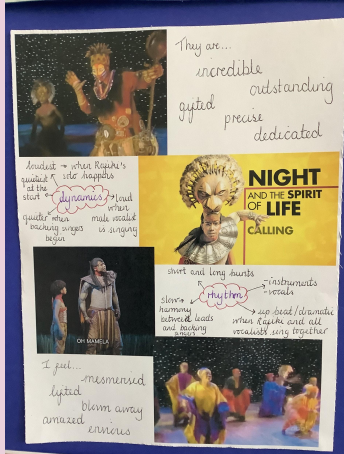 They are...
incredible
outstanding
gifted
precise
dedicated
loudest → when Rafiki's
solo happens
quietest
at the
start
dynamics
loud
when
male vocalist
is singing
quieter when
backing singers
begin
NIGHT
AND THE SPIRIT
OF LIFE
CALLING
short and long bursts
rhythm
instruments
vocals
slow →
harmony
between leads
and backing
singers
up beat/dramatic
when Rafiki and all
vocalists sing together
OH MAMELA
I feel...
mesmerised
lifted
blown away
amazed
envious